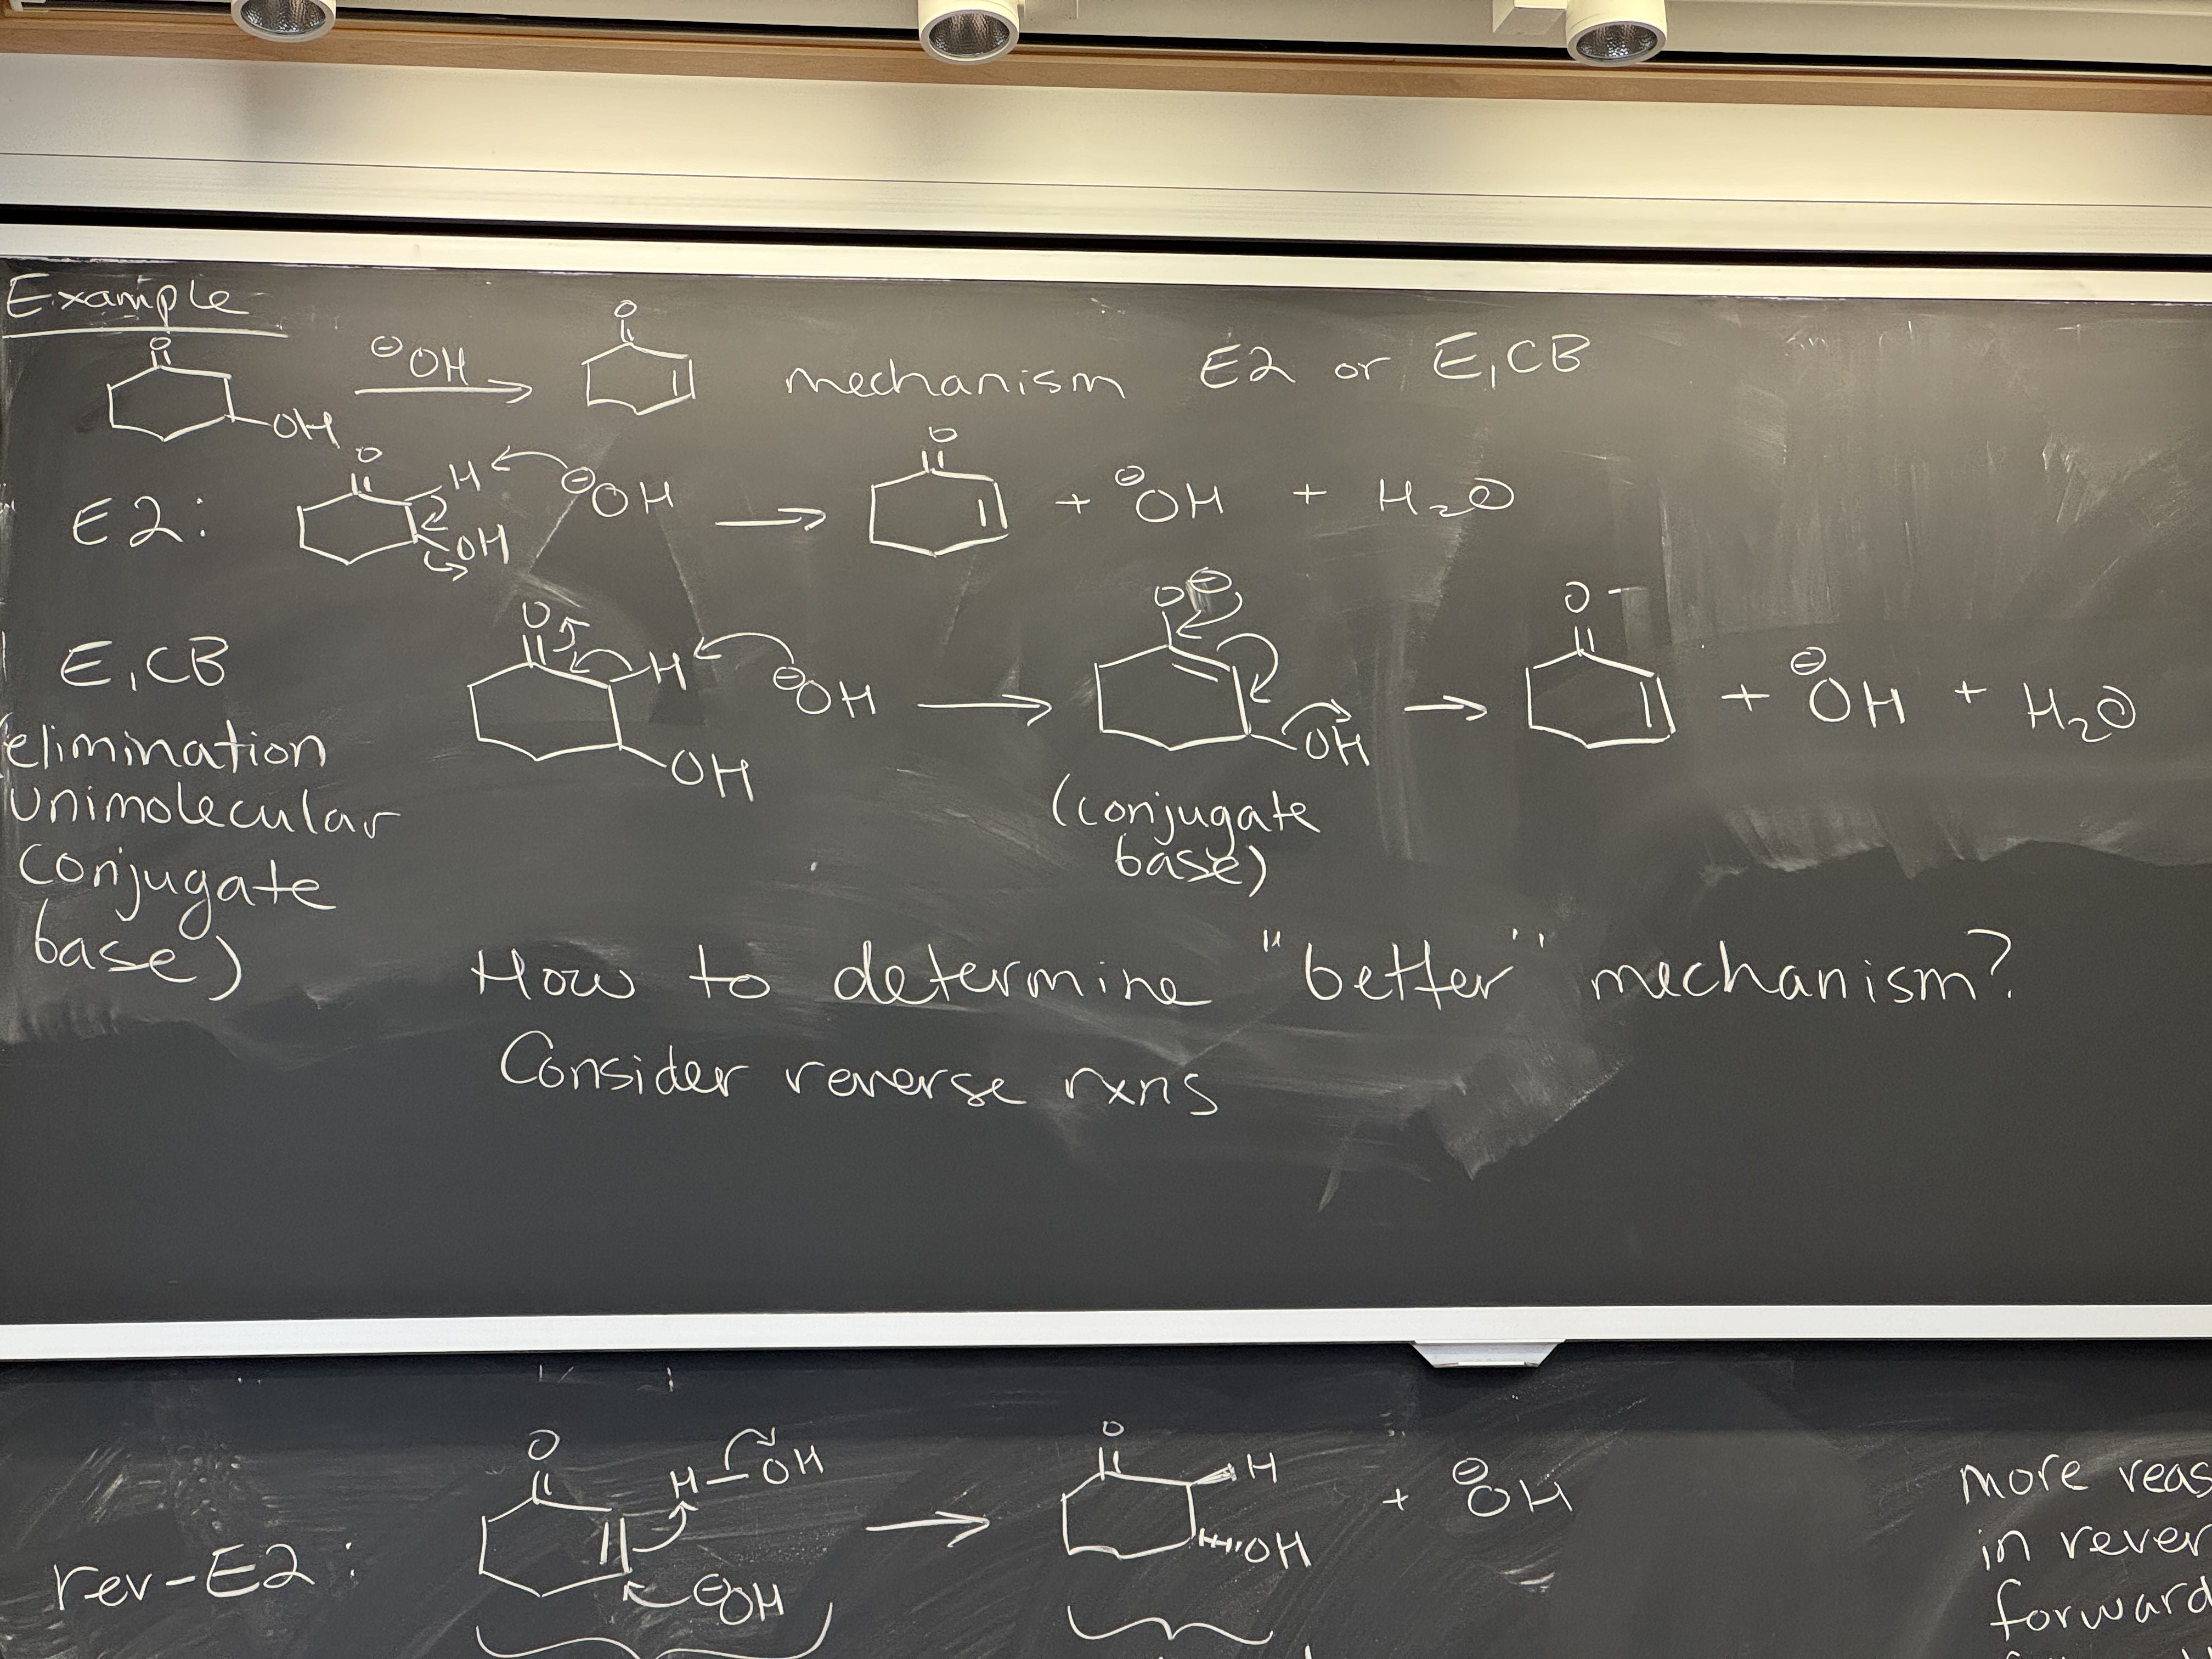 Example
O
OH
⊖OH
O
mechanism E2 or E1CB
E2:
O
H
OH
⊖OH
O
+ ⊖OH + H2O
E1CB
(elimination
unimolecular
conjugate
base)
O
H
OH
⊖OH
O⊖
OH
(conjugate
base)
O
+ ⊖OH + H2O
How to determine "better" mechanism?
Consider reverse rxns
rev-E2:
O
H-OH
⊖OH
O
H
OH
+ ⊖OH
more
in
forward